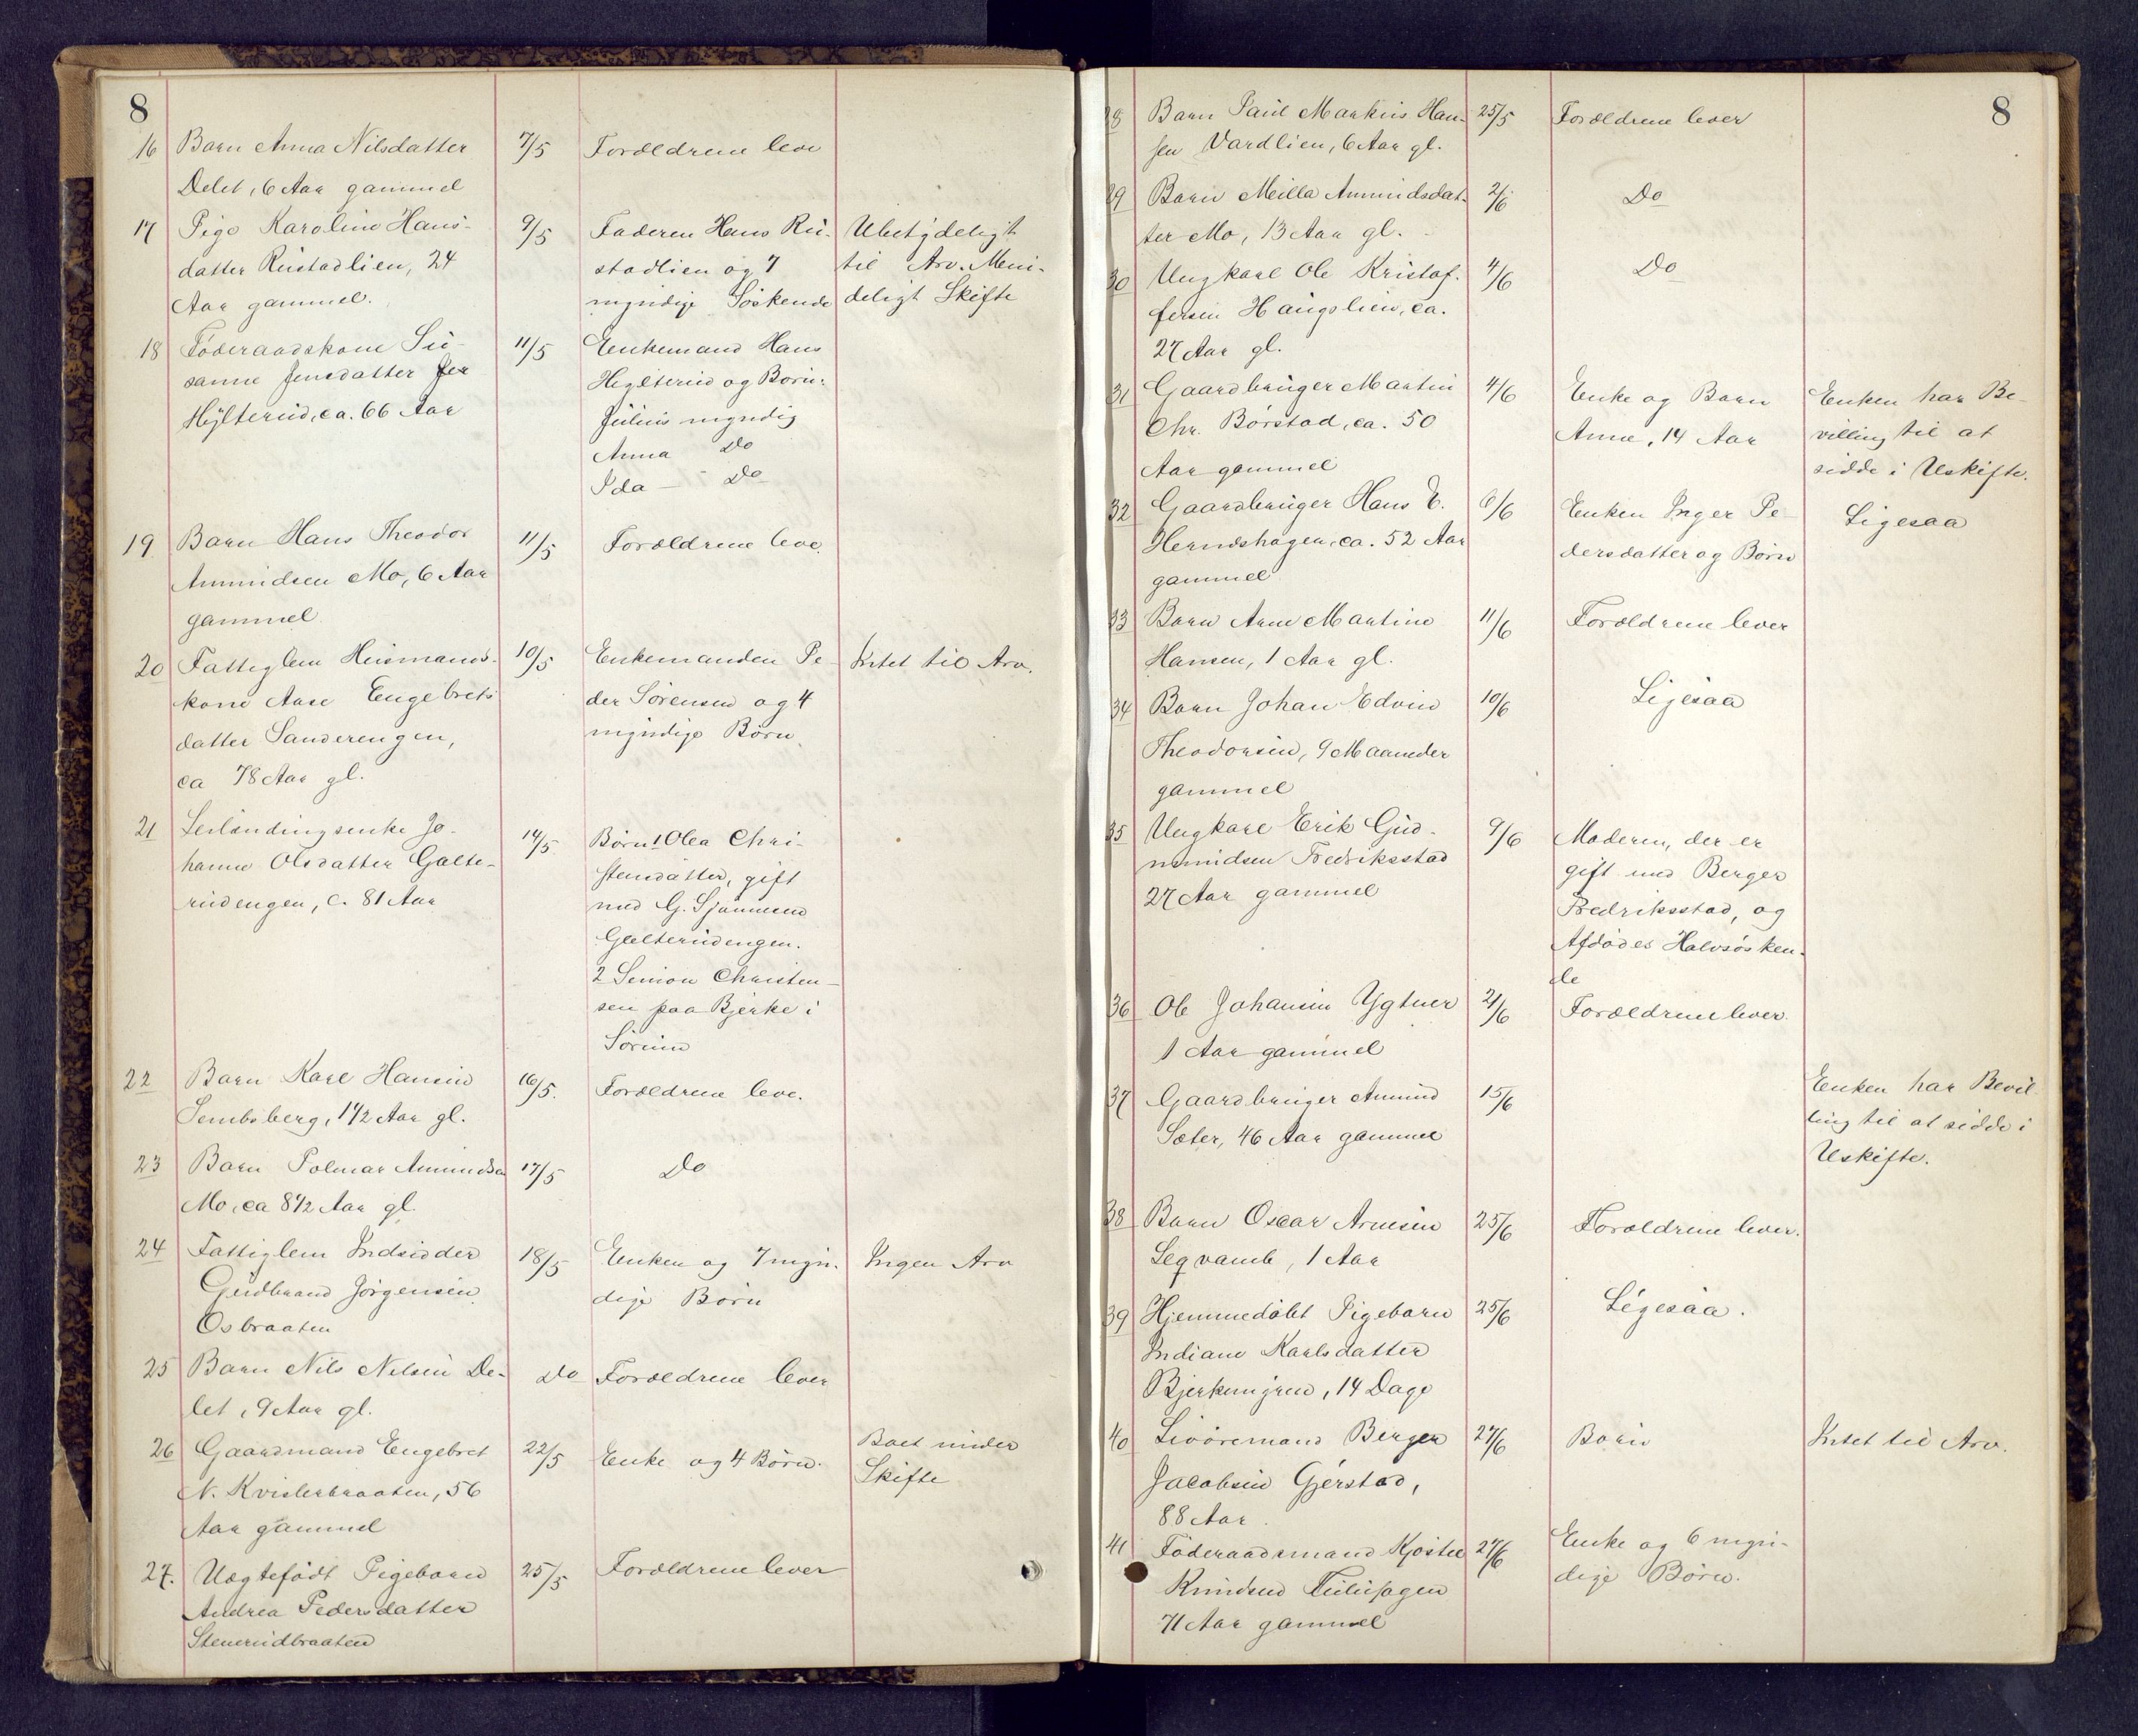 8
16 Barn Anna Nilsdatter 7/5 Forældrene leve
Delet, 6 Aar gammel
17 Pige Karoline Hans- 9/5 Faderen Hans Ru- Ubetydeligt
datter Rustadlien, 24 stadlien og 7 til Arv. Min-
Aar gammel. myndige Söskende deligt Skifte
18 Föderaadskone Su- 11/5 Enkemand Hans
sanne Jensdatter Hylterud og Börn:
Hylterud, ca. 66 Aar Julius myndig
Anna Do
Ida - Do
19 Barn Hans Theodor 11/5 Forældrene leve.
Amundsen Mo, 6 Aar
gammel
20 Fattiglem Husmands- 10/5 Enkemanden Pe- Intet til Arv.
kone Aase Engebrets der Sörensen og 4
datter Sanderengen, myndige Börn
ca 78 Aar gl.
21 Leilændingsenke Jo- 14/5 Börn 1 Olea Chri-
hanne Olsdatter Galte- stensdatter, gift
rudengen, c. 81 Aar med G.
Galterudengen.
2 Simon Christen-
sen paa Bjerke i
Sörum
22 Barn Karl Hansen 16/5. Forældrene leve.
Sembsberg, 1 1/2 Aar gl.
23 Barn Polmar Amundsen 17/5 Do
Mo, ca 8 1/2 Aar gl.
24 Fattiglem Indsidder 18/5 Enken og 7 myn- Ingen Arv
Gudbrand Jörgensen dige Börn
Osbraaten
25 Barn Nils Nilsen De- Do Forældrene lever
let, 9 Aar gl.
26 Gaardmand Engebret 22/5 Enke og 4 Börn. Boet under
N. Kvislerbraaten, 56 Skifte
Aar gammel
27. Uægtefödt Pigebarn 25/5 Forældrene lever
Andrea Pedersdatter
Stenerudbraaten
8
28 Barn Paul Markus Han- 25/5 Forældrene lever
sen Vardlien, 6 Aar gl.
29 Barn Milla Amundsdat- 2/6 Do
ter Mo, 13 Aar gl.
30 Ungkarl Ole Kristof- 4/6 Do
fersen Haugslien, ca.
27 Aar gl.
31 Gaardbruger Martin 4/6 Enke og Barn Enken har Be-
Chr. Börstad, ca. 50 Anna, 14 Aar villing til at
Aar gammel sidde i Uskifte.
32 Gaardbruger Hans E. 6/6 Enken Inger Pe- Ligesaa
Herndshagen, ca. 52 Aar dersdatter og Börn
gammel
33 Barn Arne Martin 11/6 Forældrene lever
Hansen, 1 Aar gl.
34 Barn Johan Edvin 10/6 Ligesaa
Theodorsen, 9 Maaneder
gammel
35 Ungkarl Erik Gud- 9/6 Moderen, der er
mundsen Fredriksstad gift med Berger
27 Aar gammel Fredriksstad, og
Afdödes Halvsösken-
de
36 Ole Johansen Ygtner 2/6 Forældrene lever.
1 Aar gammel
37 Gaardbruger Amund 15/6 Enken har Bevil-
Sæter, 46 Aar gammel ling til at sidde i
Uskifte.
38 Barn Oscar Arnesen 25/6 Forældrene lever.
Legvamb, 1 Aar
39 Hjemmedöbt Pigebarn 25/6 Ligesaa.
Indiane Karlsdatter
Bjerkemyren, 14 Dage
40 Livöremand Berger 27/6 Börn Intet til Arv.
Jacobsen Gjerstad,
88 Aar.
41 Föderaadsmand Kjöstel 27/6 Enke og 6 myn-
Knudsen dige Börn.
71 Aar gammel